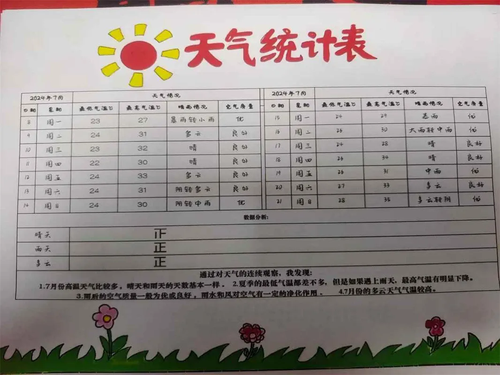 天气统计表
2024年7月 天气情况 2024年7月 天气情况
日期 星期 最低气温℃ 最高气温℃ 晴雨情况 空气质量 日期 星期 最低气温℃ 最高气温℃ 晴雨情况 空气质量
8 周一 23 27 暴雨转小雨 优 15 周一 24 24 优
9 周二 24 31 多云 良好 16 周二 24 28 大雨转中雨 优
10 周三 22 32 晴 良好 周三 24 晴 良好
11 周四 22 33 晴 良好 周四 24 31 晴 良好
12 周五 24 33 多云 良好 周五 中雨 优
13 周六 24 31 阴转多云 良好 20 周六 28 多云 优
14 周日 24 30 阴转中雨 优 21 周日 28 35 多云转阴 优
数据分析:
晴天 正
雨天 正
多云 正
通过对天气的连续观察,我发现:
1.7月份高温天气比较多,晴天和雨天的天数基本一样。 2.夏季的最低气温都差不多,但是如果遇上雨天,最高气温有明显下降。
3.雨后的空气质量一般为优或良好,雨水和风对空气有一定的净化作用。 4.7月份的多云天气气温较高。